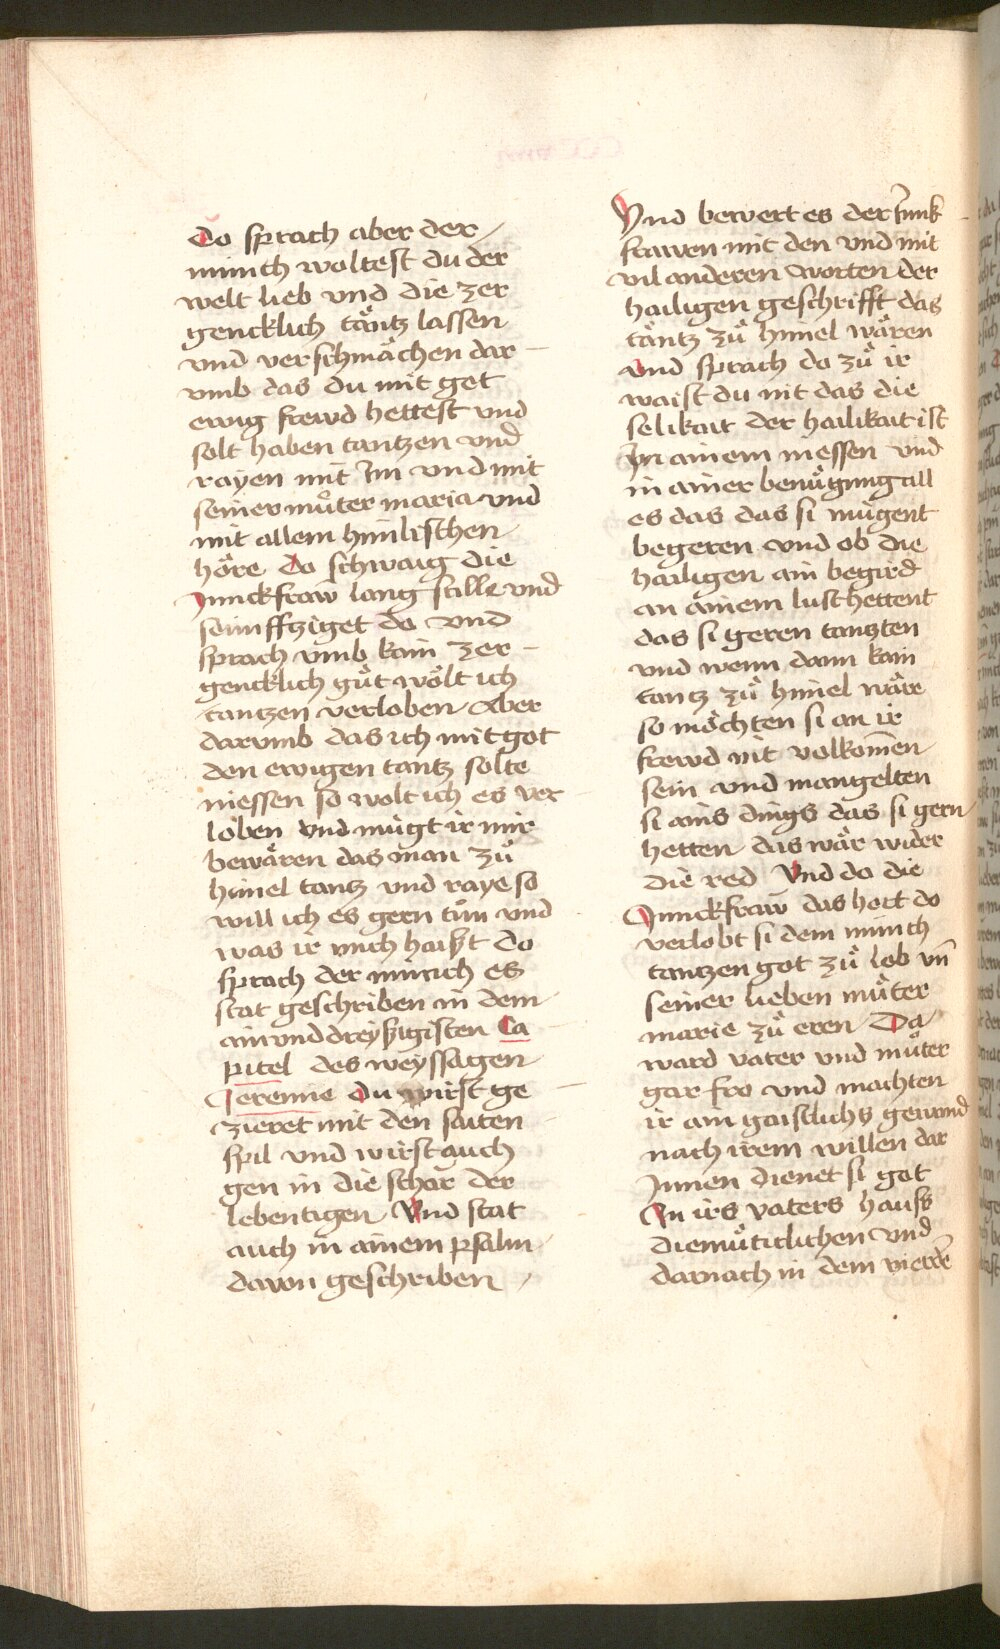 Do sprach aber der
münch woltest du der
welt lieb vnd die zer
gencklich täntz lassen
vnd verschmächen dar
vmb das du mit got
ewig frewd hettest vnd
solt haben tantzen vnd
rayen mit Im vnd mit
seiner můter maria vnd
mit allem himlischen
höre Do schwaig die
Junckfraw lang stille vnd
seinffziget do vnd
sprach vmb kain zer
gencklich gůt wölt ich
tantzen verloben Aber
darumb das ich mit got
den ewigen tantz solte
niessen so wolt ich es ver
loben vnd mügt ir mir
bewären das man zů
himel tantz vnd raye so
will ich es gern tůn vnd
was ir mich haißt Do
sprach der münich es
stat geschriben in dem
ainvnddreyßigisten Ca
pitel des weyssagen
Jeremie Du wirst ge
zieret mit den saiten
spil vnd wirst auch
gen in die schar der
lebentigen Vnd stat
auch in ainem psalm
dawn geschriben
Vnd bewert es der Junk
frawen mit den vnd mit
vil anderen worten der
hailigen geschrifft das
täntz zů himel wären
Vnd sprach do zů ir
waist du nit das die
selikait der hailikait ist
In ainem niessen vnd
in ainer benůgung all
es das das si mügent
begeren vnd ob die
hailigen ain begird
an ainem lust hettent
das si geren tanzten
vnd wenn dann kain
tantz zů himel wär
so möchten si an ir
frewd nit volkomēn
sein vnd mangelten
si ains dings das si gern
hetten das wär wider
die red Vnd da die
Junckfraw das hort do
verlobt si dem münch
tantzen got zů lob vn̄
seiner lieben můter
marie zů eren Da
ward vater vnd můter
gar fro vnd machten
ir ain gaistlichs gewand
nach irem willen dar
Jnnen dienet si got
In irs vaters hauss
diemůticlichen vnd
darnach in dem vierdē